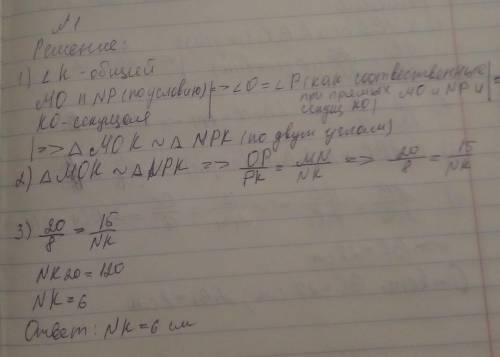 №1
Решение:
1) ∠K - общий
MO п NP (по условию) | => ∠O = ∠P (как соответственные
KO - секущая | при прямых MO и NP и
секущ KO) | =
| => △ MOK ~ △ NPK (по двум углам)
2) △ MOK ~ △ NPK => OP/PK = MN/NK => 20/8 = 15/NK
3) 20/8 = 15/NK
NK20 = 120
NK = 6
Ответ: NK = 6 см